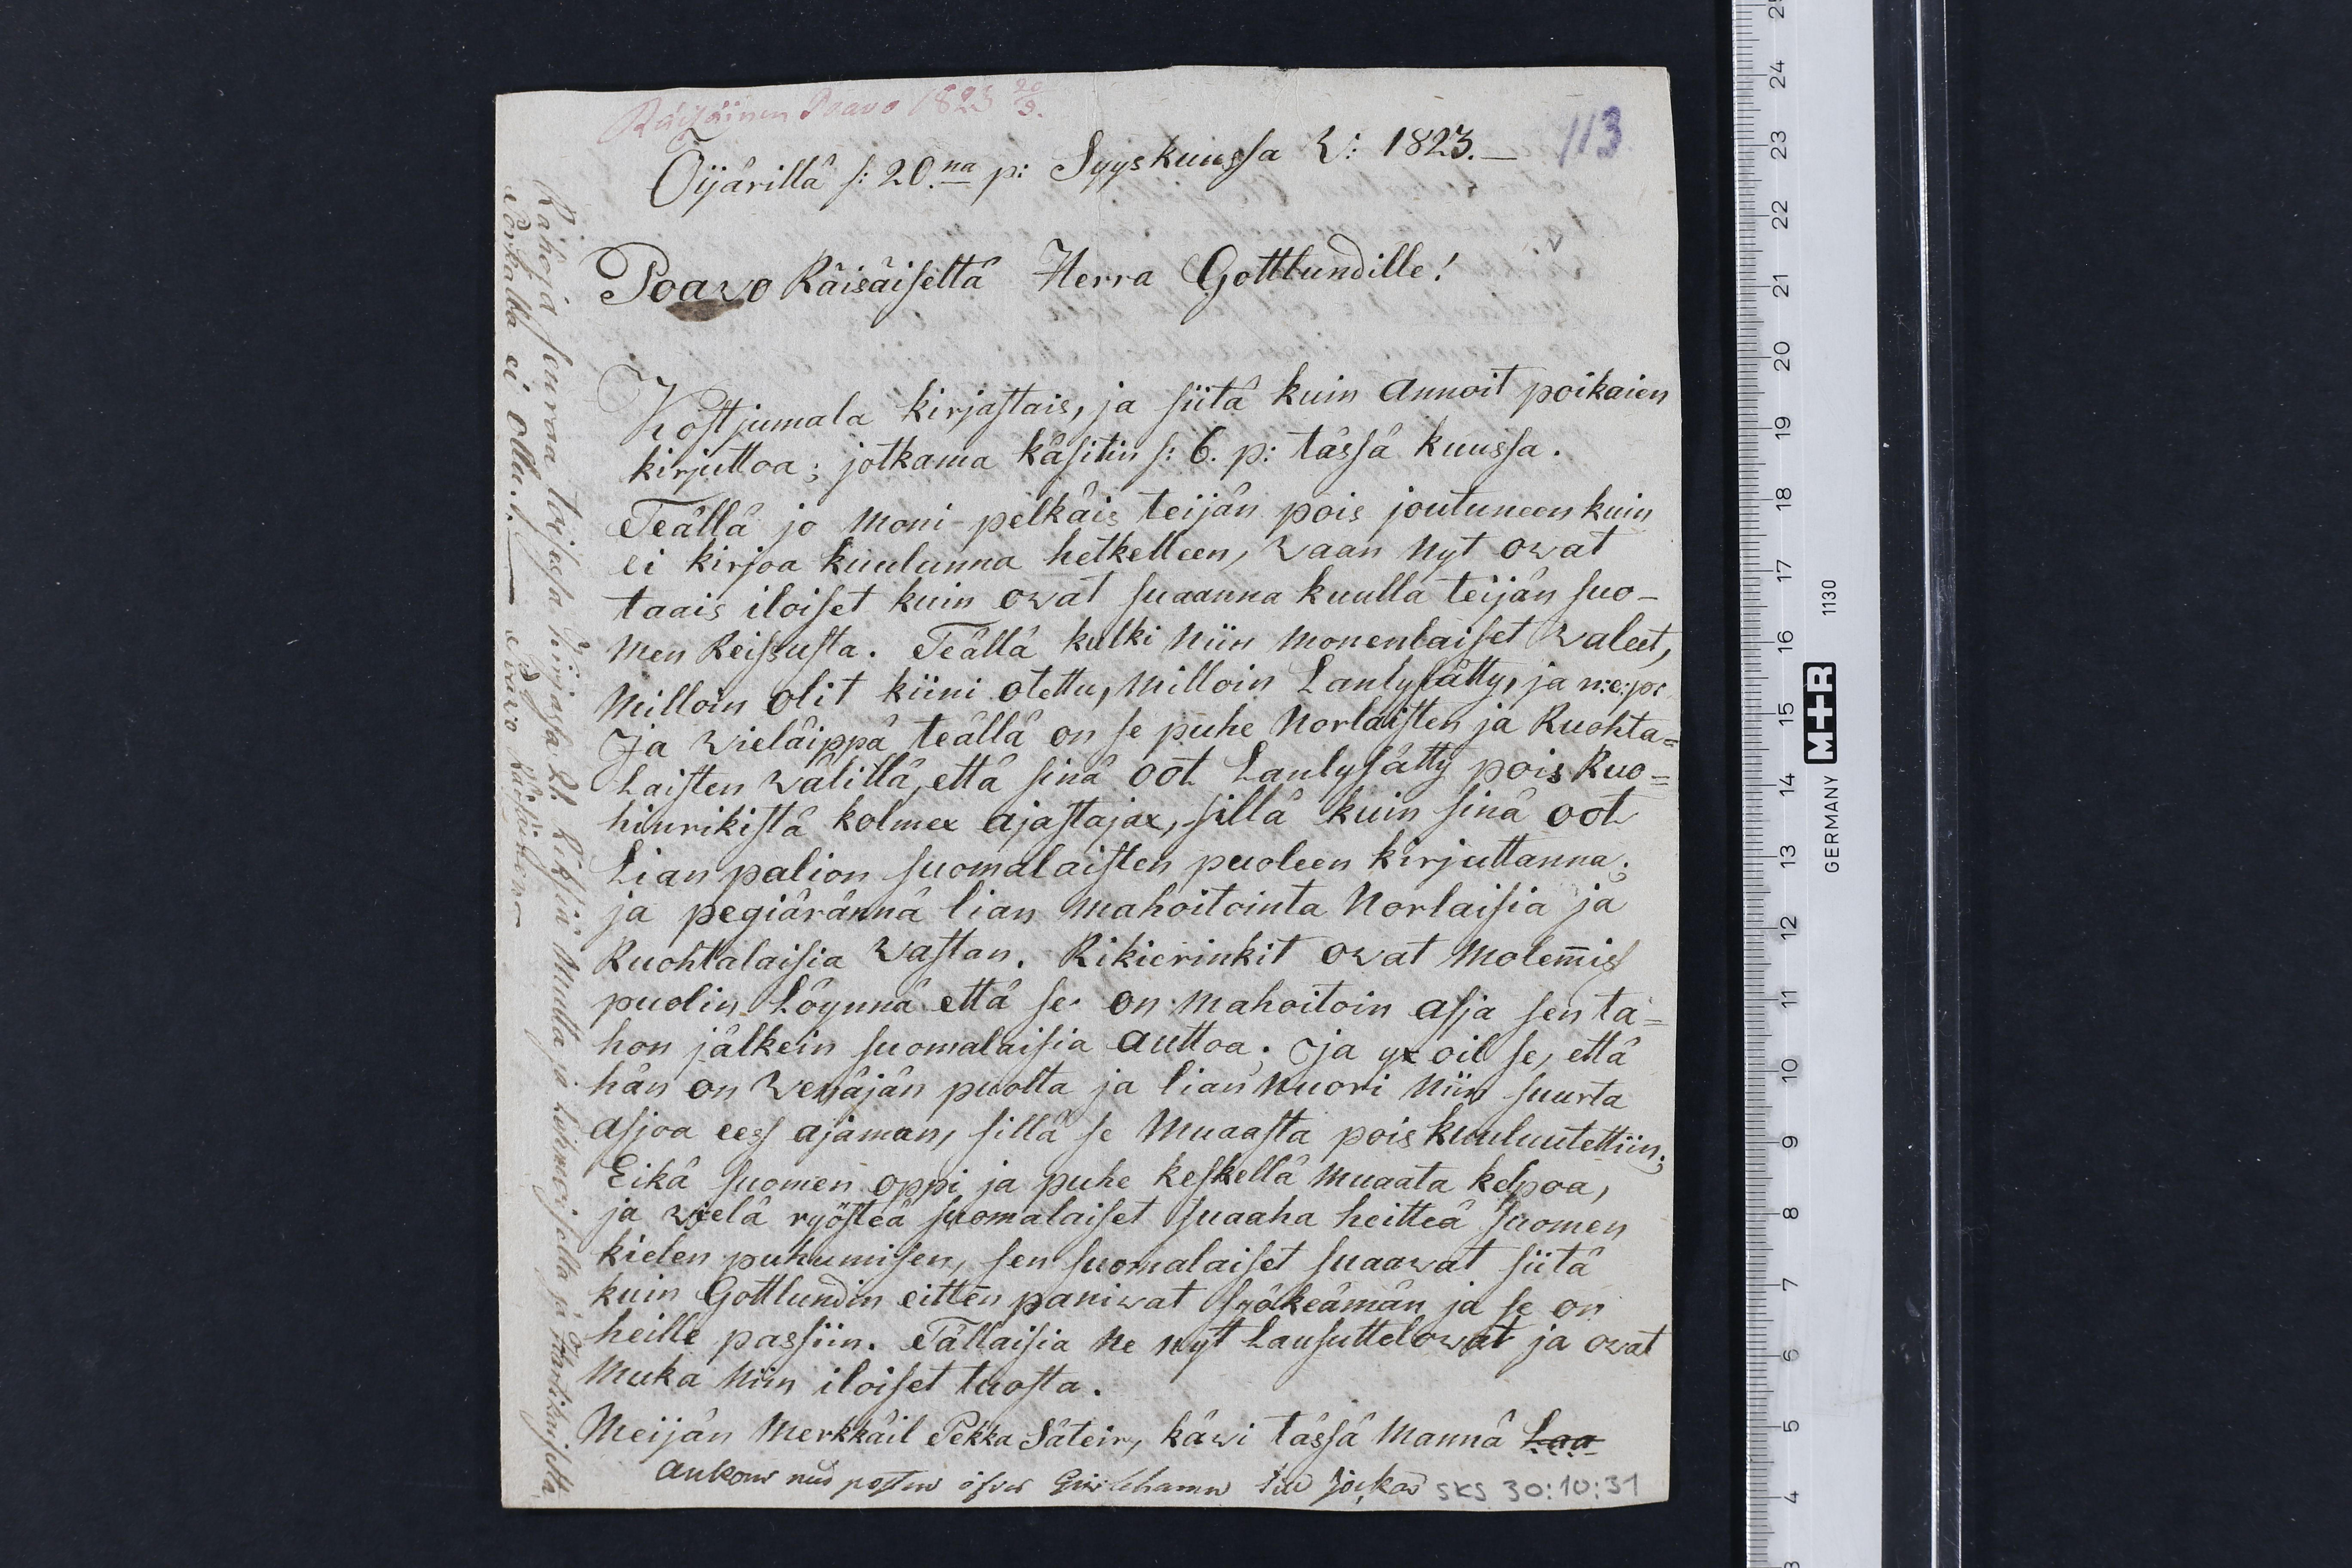 Räisäinen Paavo 1823 20/9.
113
Öijärillä s: 20.na p: Syyskuussa V: 1823.—
Poavo Räisäiseltä Herra Gottlundille!
Köstjumala kirjastais, ja siitä kuin annoit poikaien
kirjuttoa; jotkama käsitin s: 6. p: tässä kuussa.
Teällä jo moni pelkäis teijän pois joutuneen kuin
ei kirjoa kuulunna hetkelleen, vaan nyt ovat
taais iloiset kuin ovat suaanna kuulla teijän suo-
men Reissusta. Teällä kulki niin monenlaiset valeet,
milloin olit kiini otettu, milloin Lanlysätty, ja n:e:por
Ja vieläippä teällä on se puhe Norlaisten ja Ruohta=
laisten välillä, että sinä oot Lanlysätty pois Ruo=
hinrikistä kolmex ajastajax, sillä kuin sinä oot
Lian palion suomalaisten puoleen kirjuttanna;
ja pegiärännä lian mahoitointa Norlaisia ja
Ruohtalaisia vastan. Rikierinkit ovat molem̄is
puolin Löynnä että se on mahoitoin asja sen ta=
hon jälkein suomalaisia auttoa. Ja yx oil se, että
hän on Venäjän puolta ja lian nuori niin suurta
asjoa eess ajaman, sillä se muaasta pois kuuluutettiin;
Eikä suomen oppi ja puhe keskellä muaata kelpoa,
ja vielä ryösteä suomalaiset suaaha heitteä suomen
kielen puhumisen, sen suomalaiset suaavat siitä
kuin Gottlundin eitten panivat hyökeämän ja se on
heille passiin. Tällaisia he nyt Lausuttelovat ja ovat
muka niin iloiset tuosta.
Meijän Merkkäil Pekka Säteir, kävi tässä Mannä Laa
Ankom med posten öfver
SKS 30:10:31
Rahoja seuraa toisessa kirjassa 21. Riksiä Multa ja
Porkalla ei ollu.!— Poavo Räisäinen